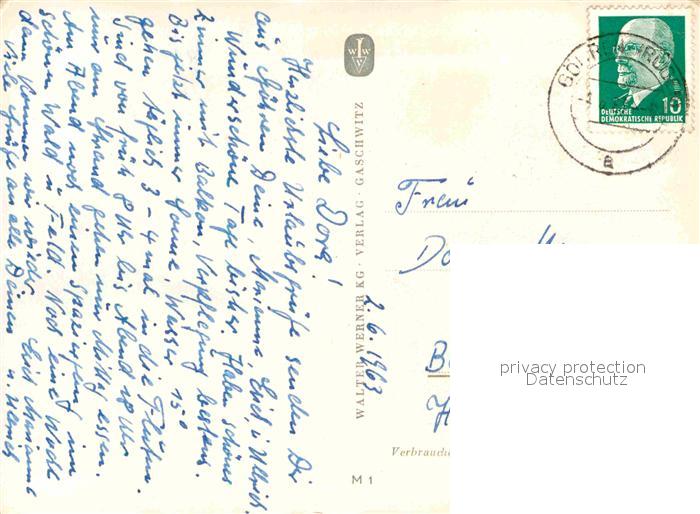 Liebe Dora!
Herzlichste Urlaubsgrüße senden Dir
aus Göhren Deine, Marianne, Erich, u. Ullrich.
Wunderschöne Tage bisher. Haben schönes
Zimmer mit Balkon, Verpflegung bestens.
Bis jetzt immer Sonne, Wasser 15°
gehen täglich 3-4 mal in die Fluten.
Sind von früh 8 Uhr bis Abend 18 Uhr
nur am Strand gehen nur Mittag essen.
Am Abend noch einen Spaziergang im
schönen Wald u. Feld. Noch eine Woche
dann kommen wir wieder.
Viele Grüße an alle Deinen
Erich Marianne
u.
WWV
WALTER WERNER KG · VERLAG · GASCHWITZ
M 1
2.6.1963
GÖHREN
a
DEUTSCHE
DEMOKRATISCHE REPUBLIK
10
Frau
Do
B
H
Verbrauche
privacy protection
Datenschutz